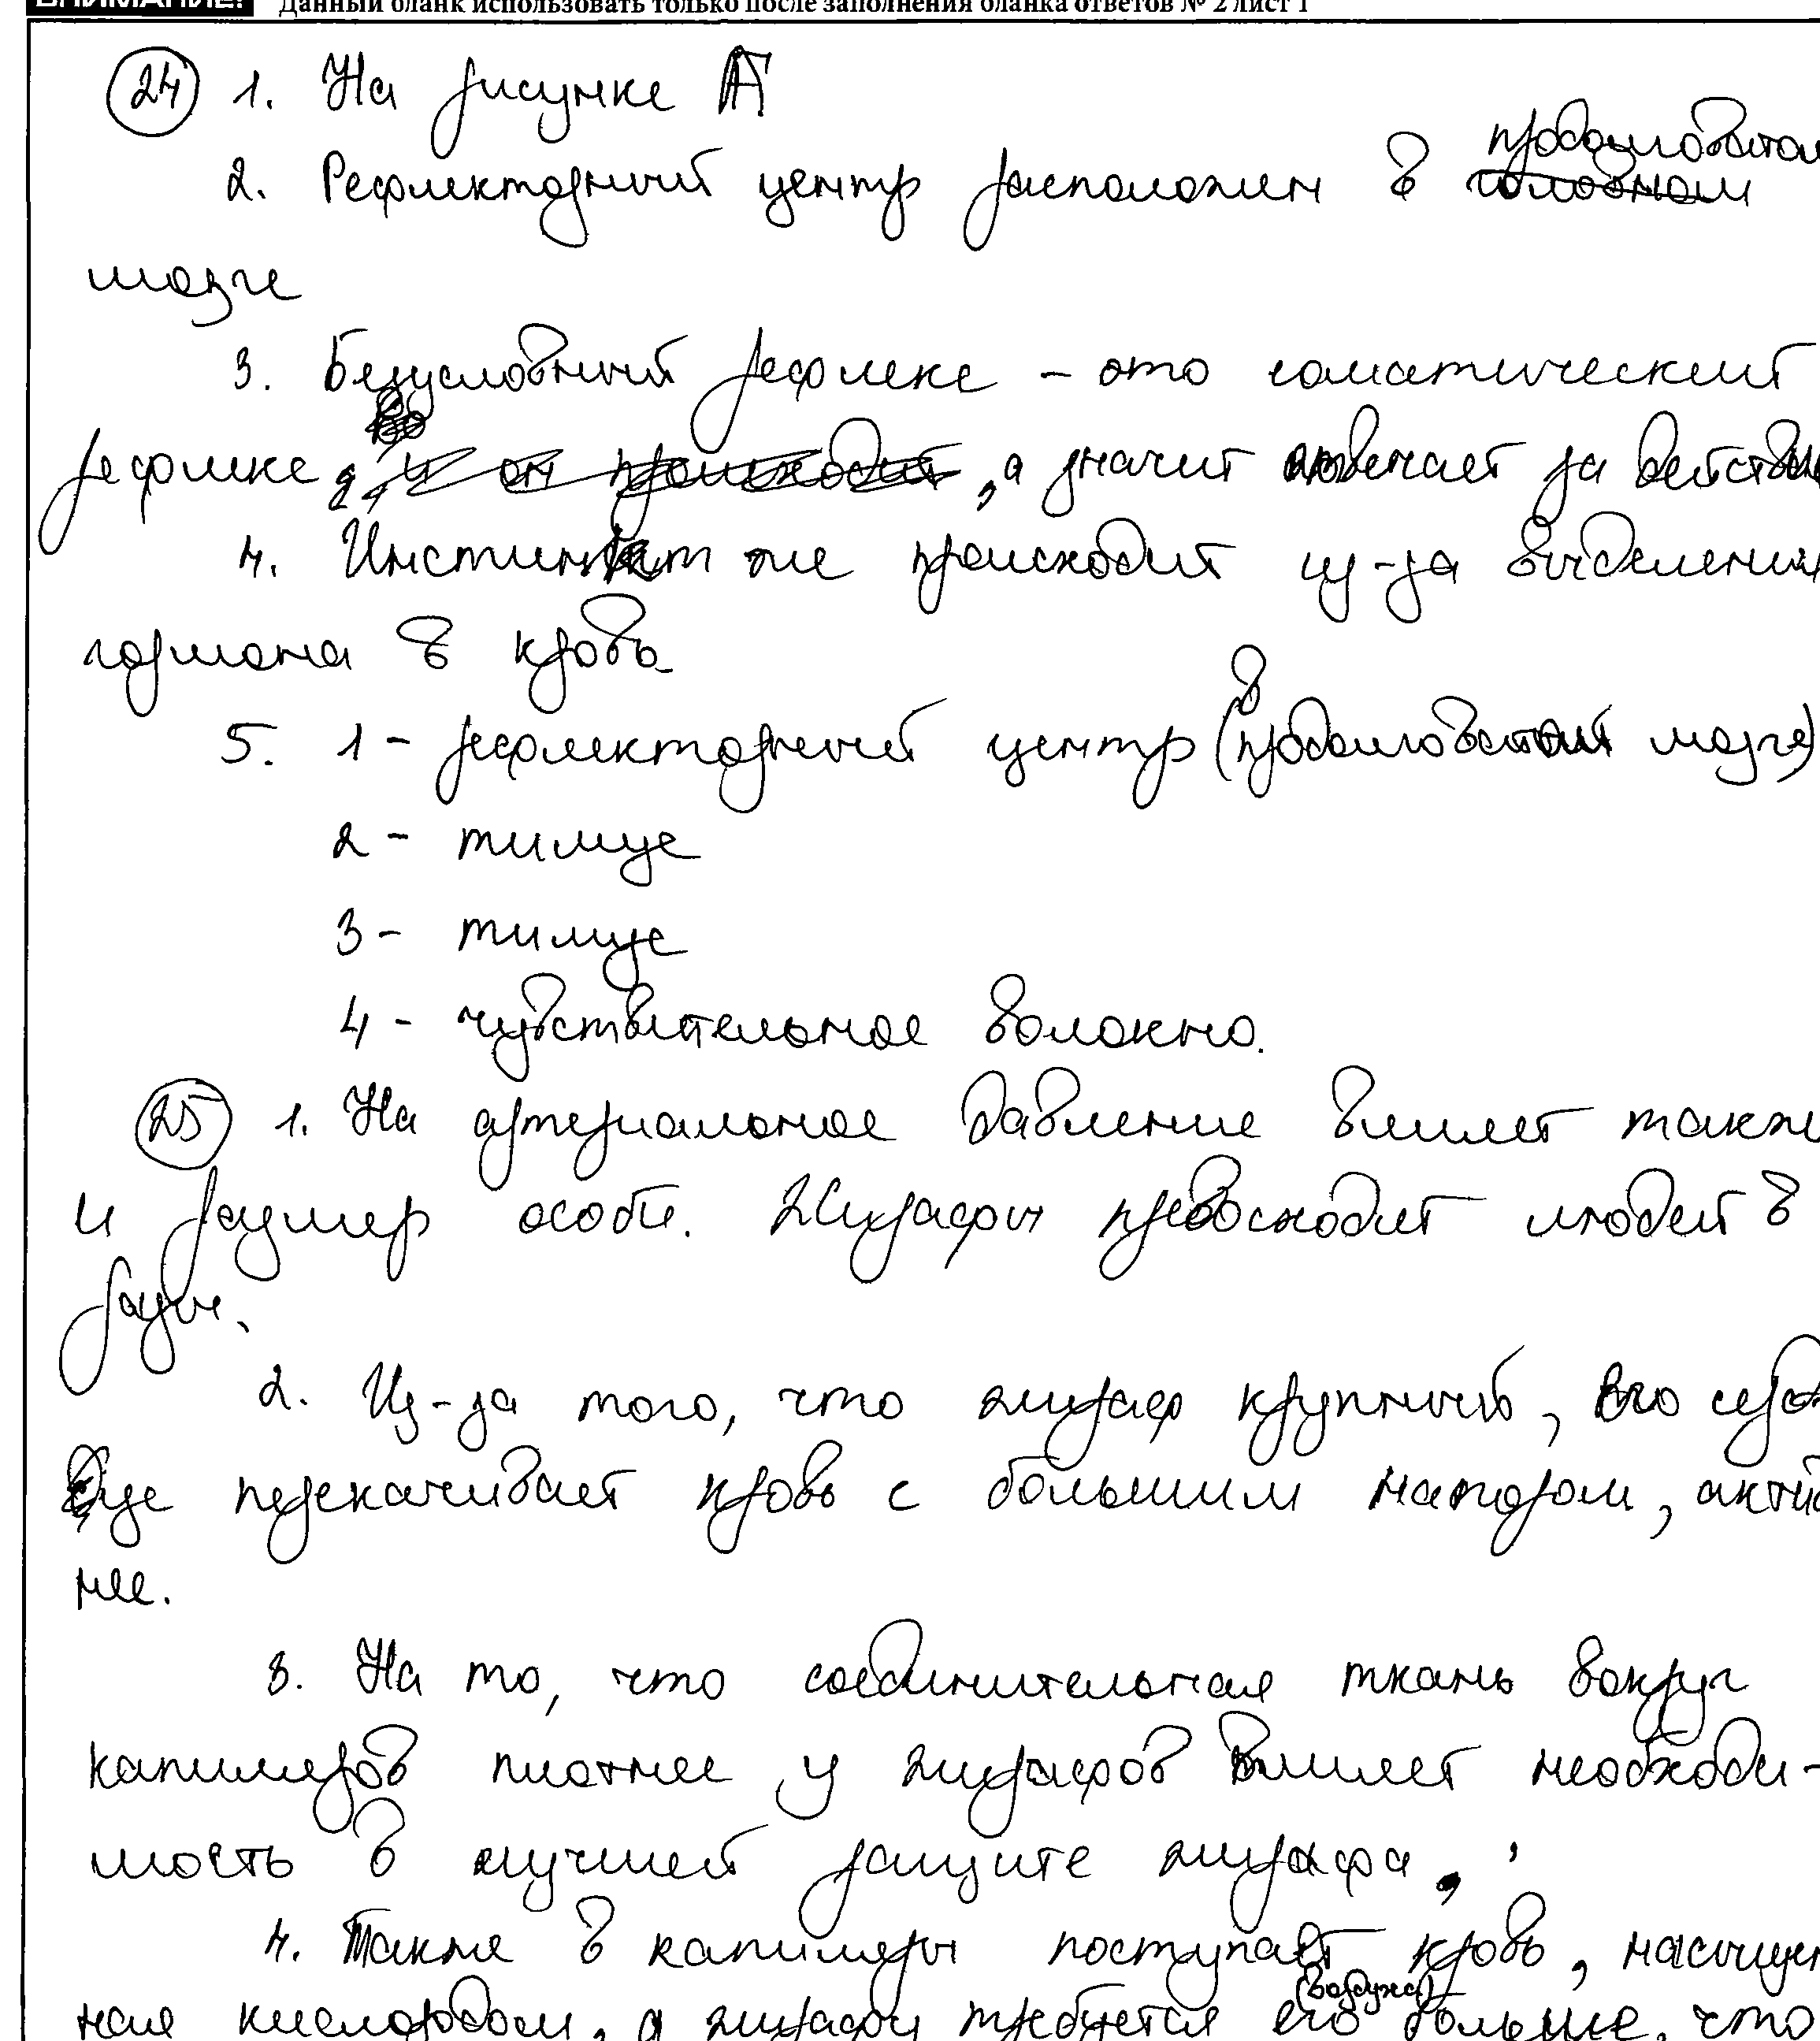 ВНИМАНИЕ! Данный бланк использовать только после заполнения бланка ответов № 2 лист 1
24 1. На рисунке А
продолговатом
2. Рефлекторный центр расположен в головном
мозге
3. Безусловный рефлекс - это соматический
рефлекс, и он происходит, а значит отвечает за действи
4. Инстинкт же происходит из-за выделения
гормона в кровь
5. 1 - рефлекторный центр (в продолговатом мозге)
2 - тимус
3 - тимус
4 - чувствительное волокно.
25 1. На артериальное давление влияет такж
и размер особи. Жирафы превосходят людей в
разы.
2. Из-за того, что жираф крупный, его серд
це перекачивает кровь с большим напором, актив
нее.
3. На то, что соединительная ткань вокруг
капиляров плотнее у жирафов влияет необходи-
мость в лучшей защите жирафа,
4. Также в капиляры поступает кровь, насыщен
(воздуха)
ная кислородом, а жирафу требуется его больше, что